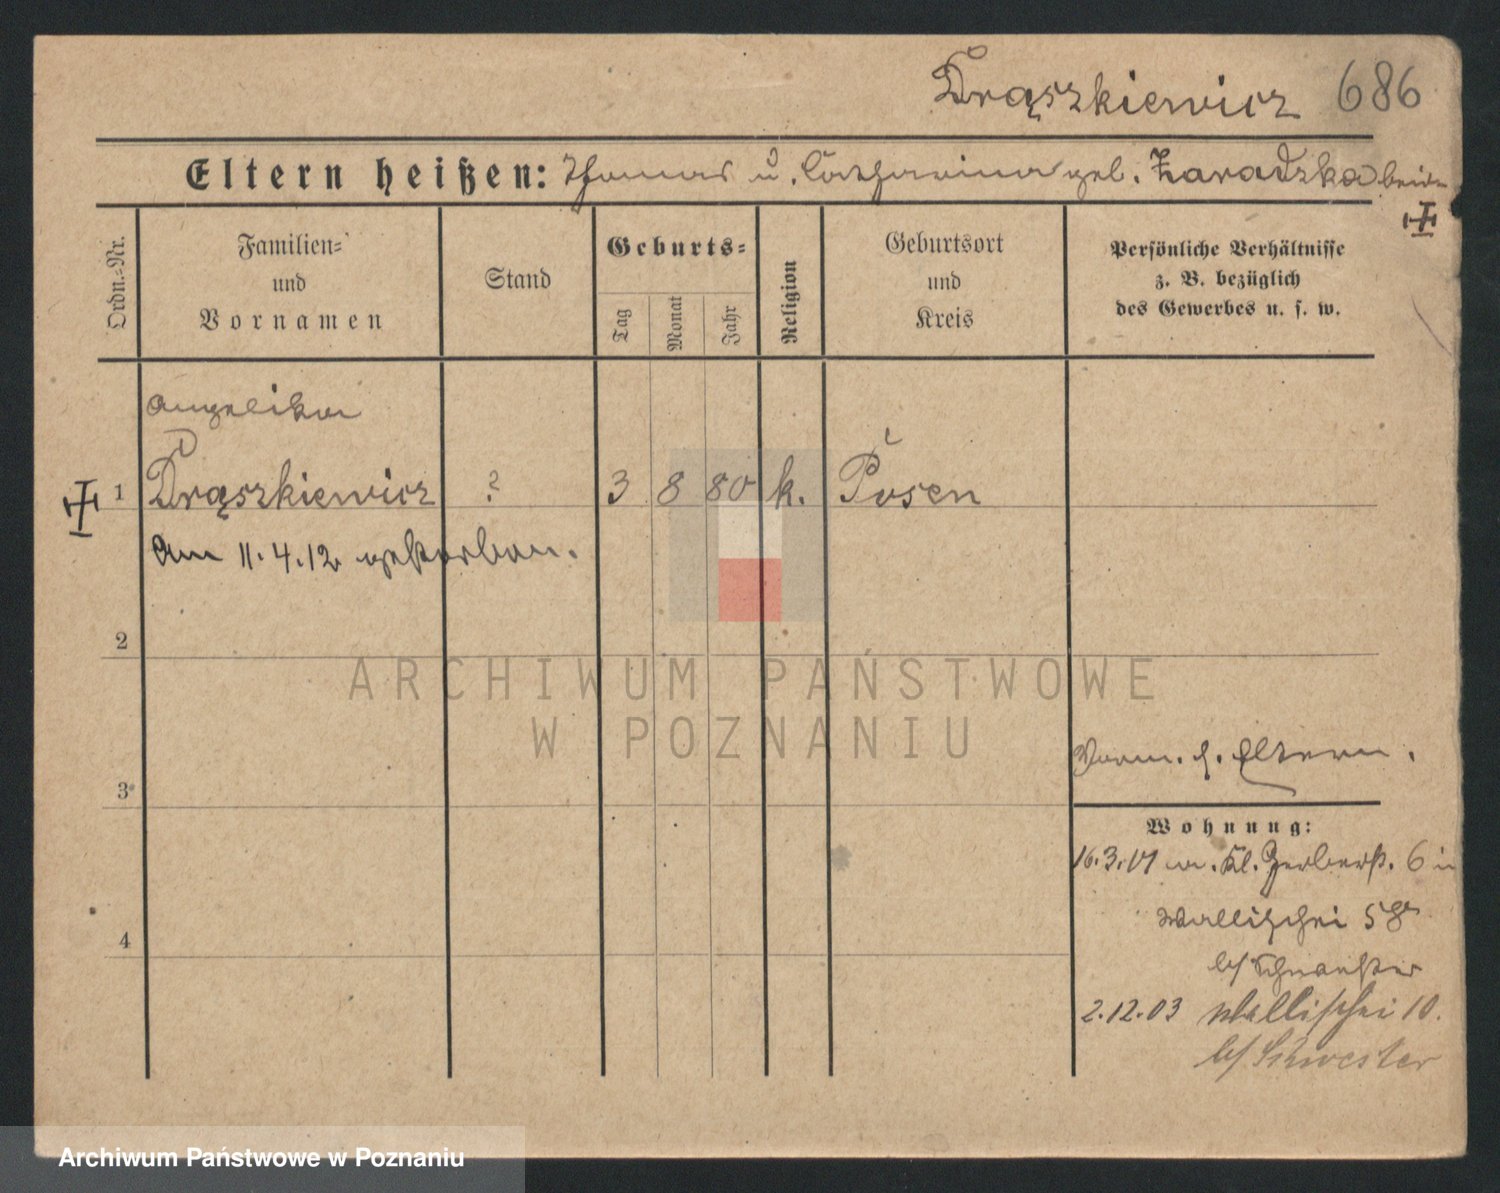 Drąszkiewicz 686
Eltern heißen: Thomas u. Catharina geb. Zaradzka beide
Ordn.-Nr.
Familien-
und
Vornamen
Stand
Geburts-
Tag
Monat
Jahr
Religion
Geburtsort
und
Kreis
Persönliche Verhältnisse
z. B. bezüglich
des Gewerbes u. s. w.
Angelika
1 Drąszkiewicz ? 3 8 80 k. Posen
Am 11.4.12 gestorben.
2
ARCHIWUM PAŃSTWOWE
W POZNANIU
3
Vorm. s. Eltern.
Wohnung:
16.3.01 Kl. Gerberst. 6
4
Wallischei 58
b/ Schwester
2.12.03 Wallischei 10.
b/ Schwester
Archiwum Państwowe w Poznaniu